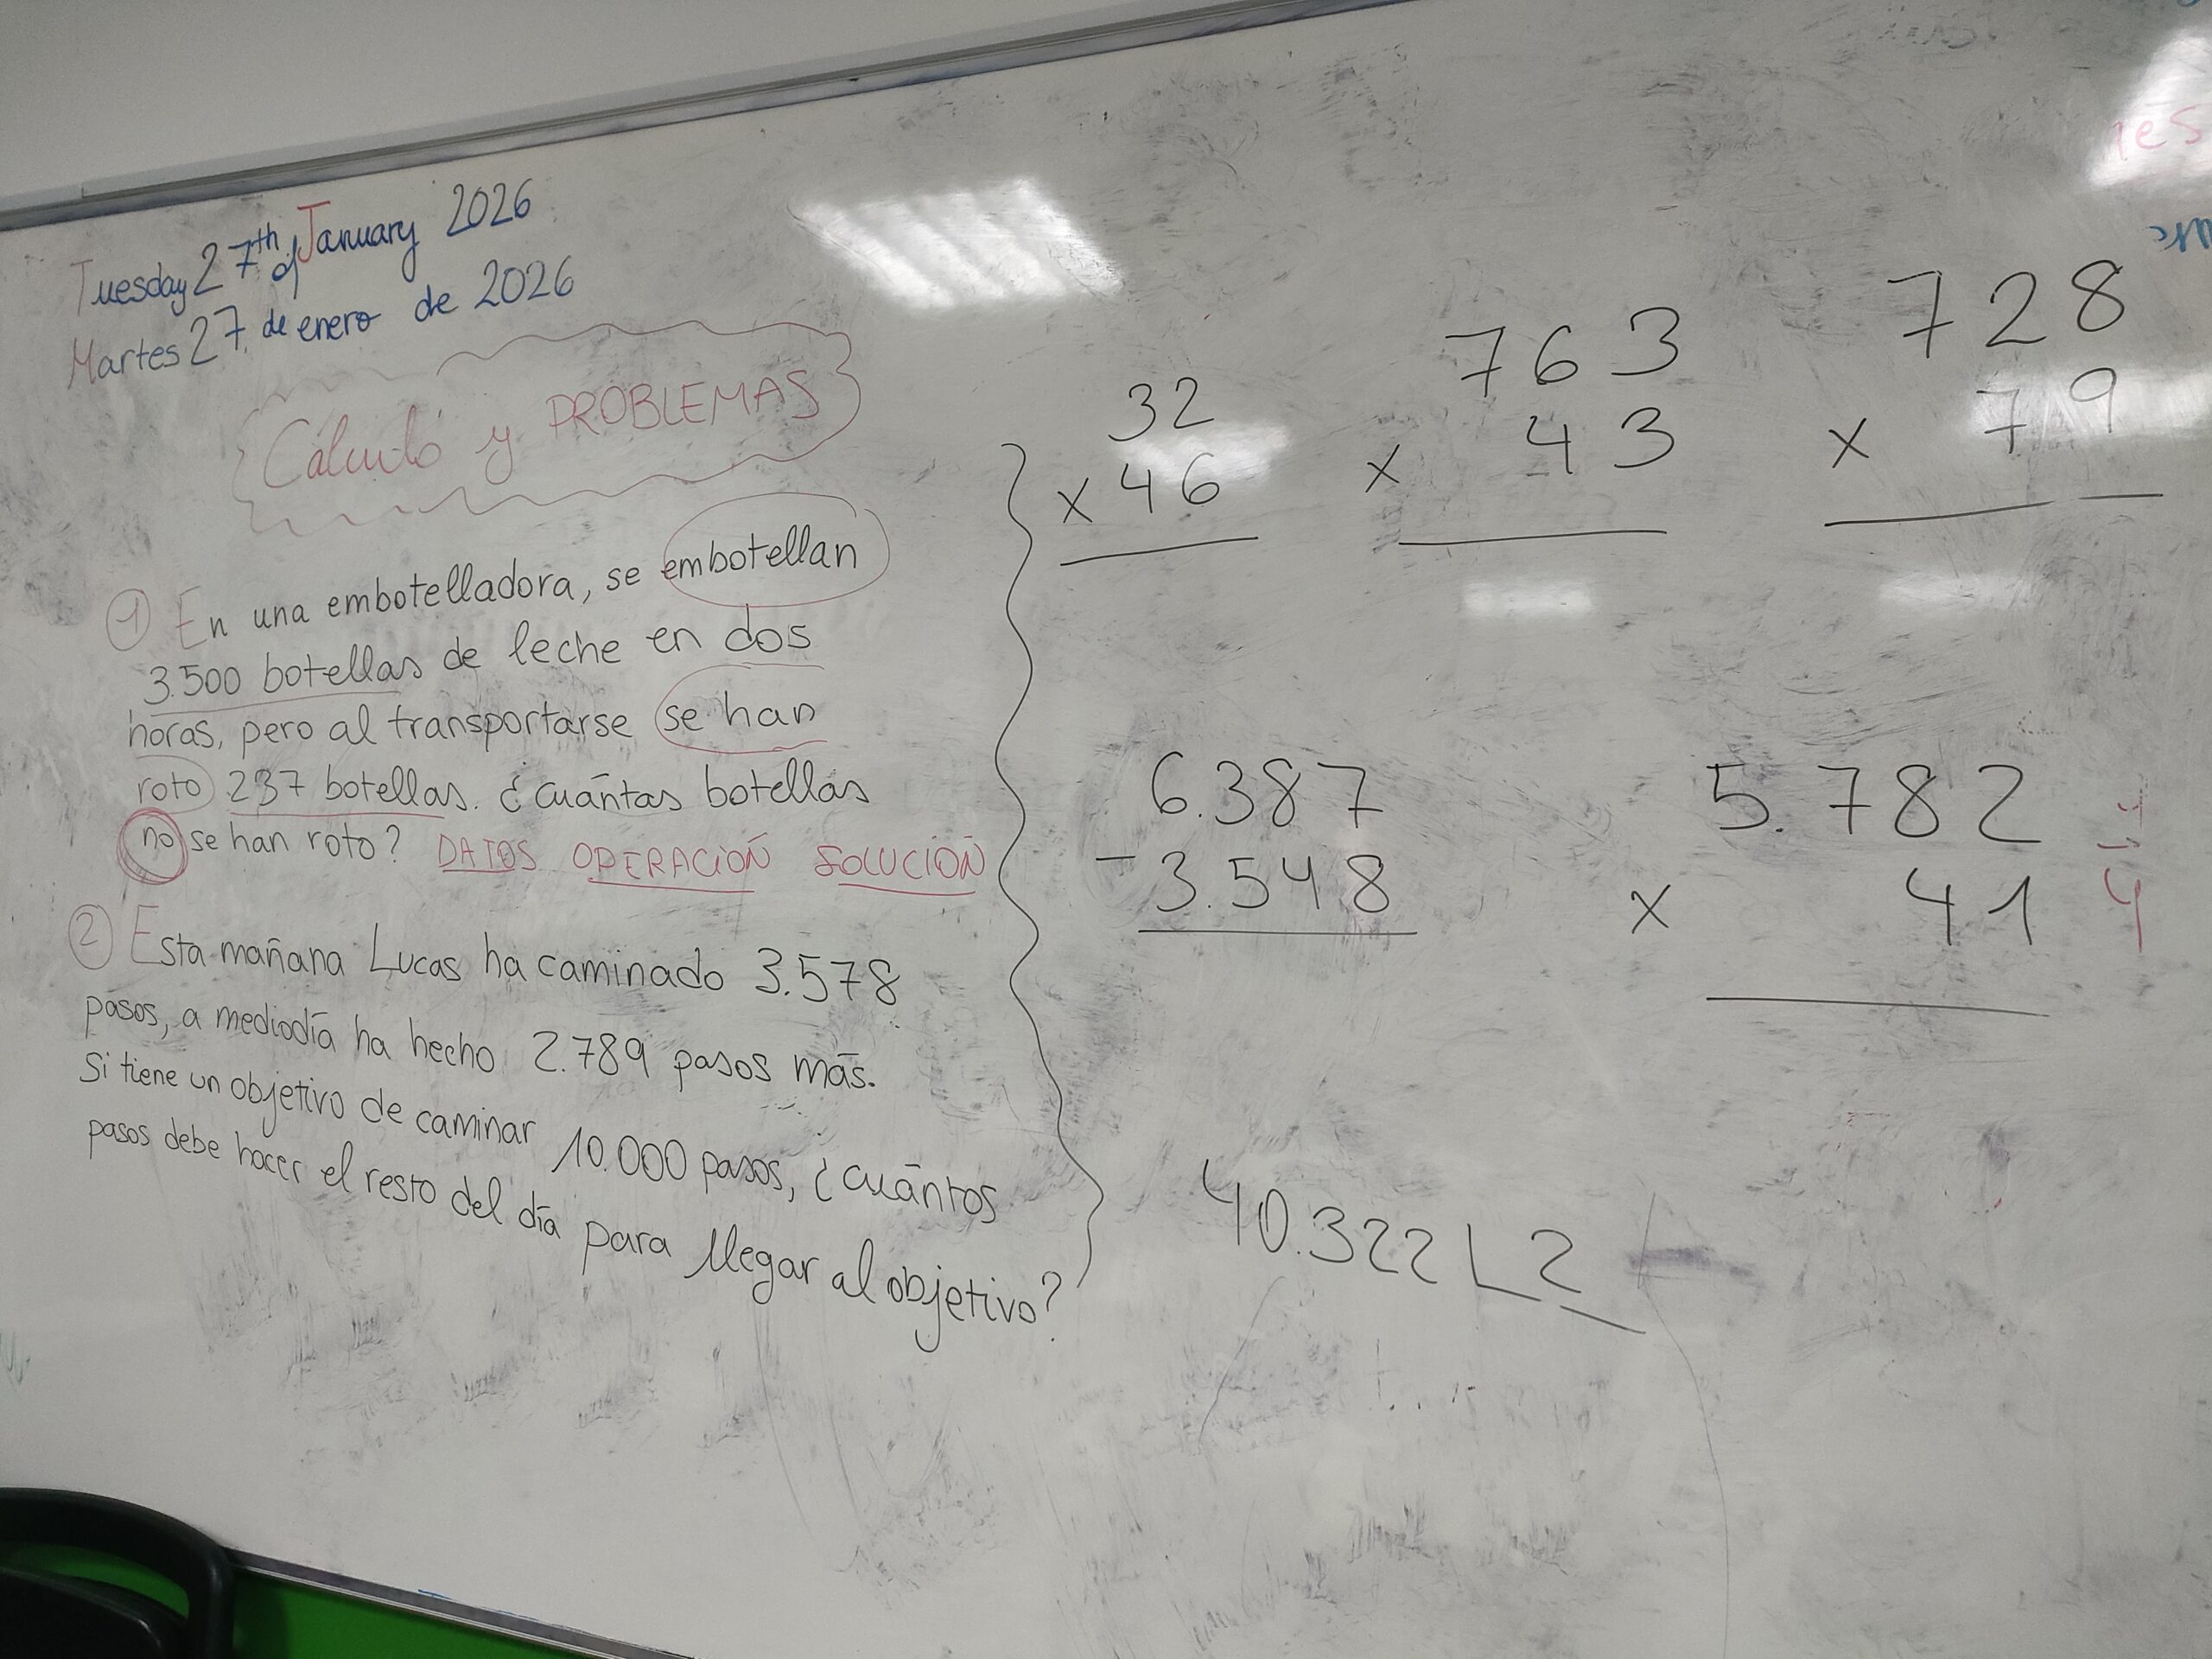 Tuesday 27th of January 2026
Martes 27 de enero de 2026
Cálculo y PROBLEMAS
1 En una embotelladora, se embotellan
3.500 botellas de leche en dos
horas, pero al transportarse se han
roto 237 botellas. ¿cuántas botellas
no se han roto? DATOS OPERACIÓN SOLUCIÓN
2 Esta mañana Lucas ha caminado 3.578
pasos, a mediodía ha hecho 2.789 pasos más.
Si tiene un objetivo de caminar 10.000 pasos, ¿cuántos
pasos debe hacer el resto del día para llegar al objetivo?
32
x 46
763
x 43
728
x 79
6.387
- 3.548
5.782
x 41
4
40.322 L 2